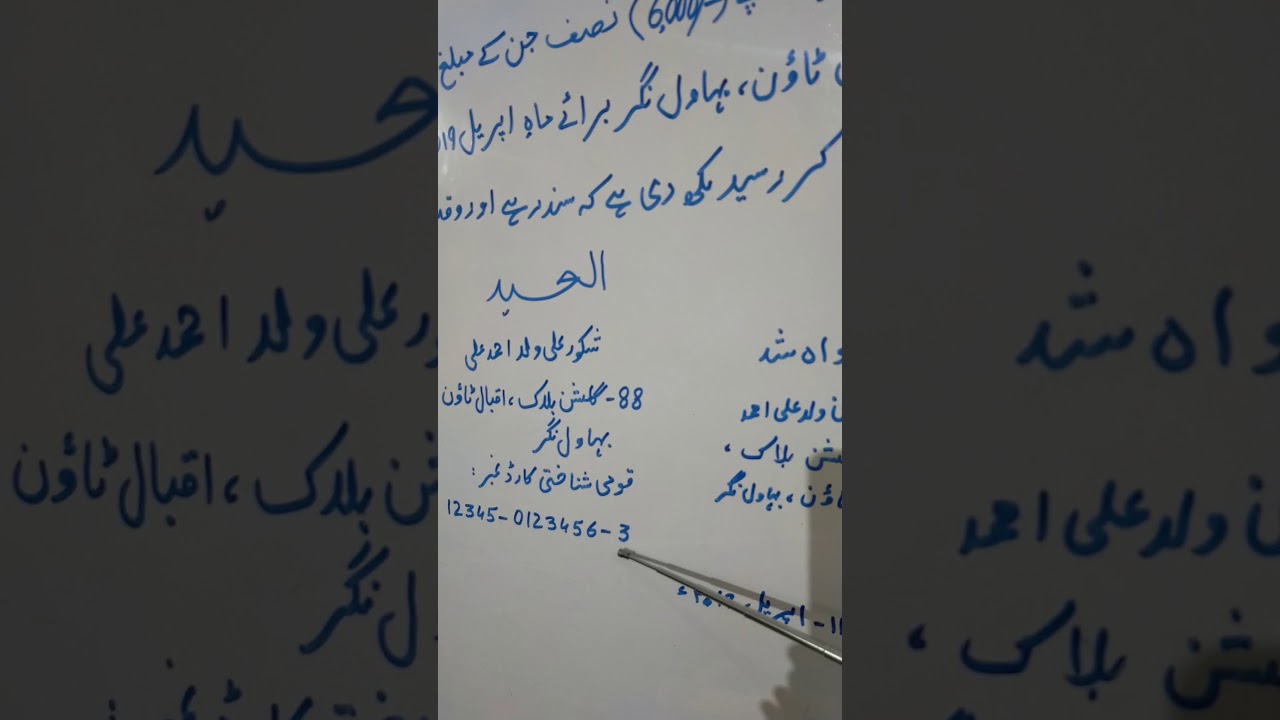 (6,000/-) نصف جن کے مبلغ
ٹاؤن، بہاول نگر برائے ماہِ اپریل
کر رسید لکھ دی ہے کہ سند رہے اور
العبد
شکور علی ولد احمد علی
88- گلشن بلاک، اقبال ٹاؤن
بہاول نگر
قومی شناختی کارڈ نمبر:
12345-0123456-3
واہ شد
ولد علی احمد
بلاک،
بہاول نگر
11- اپریل